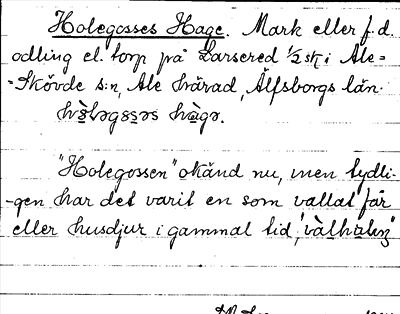 Holegosses Hage. Mark eller f.d.
odling el. torp på Larsered ½ sk i Ale=
-Skövde s:n, Ale härad, Älfsborgs län.
hɷ̀ləgɷsəs hàgə.
"Holegossen" okänd nu, men tydli-
-gen har det varit en som vallat får
eller husdjur i gammal tid,